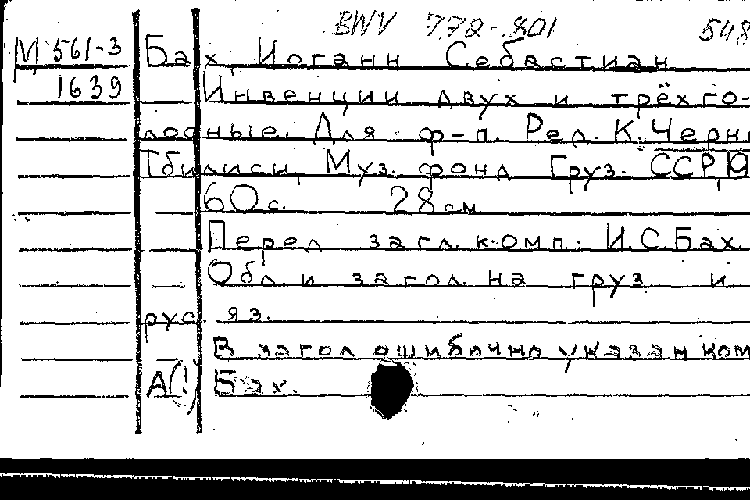 BWV 772-801 548
М 561-3 Бах, Иоганн Себастиан
1639 Инвенции двух и трёхго-
лосные. Для ф-п. Ред. К. Черни
Тбилиси, Муз. фонд Груз. ССР, 19
60 с. 28 см
Перед загл. комп.: И.С. Бах.
Обл. и загол. на груз. и
рус. яз.
В загол. ошибочно указан ком
А(!) Бах.